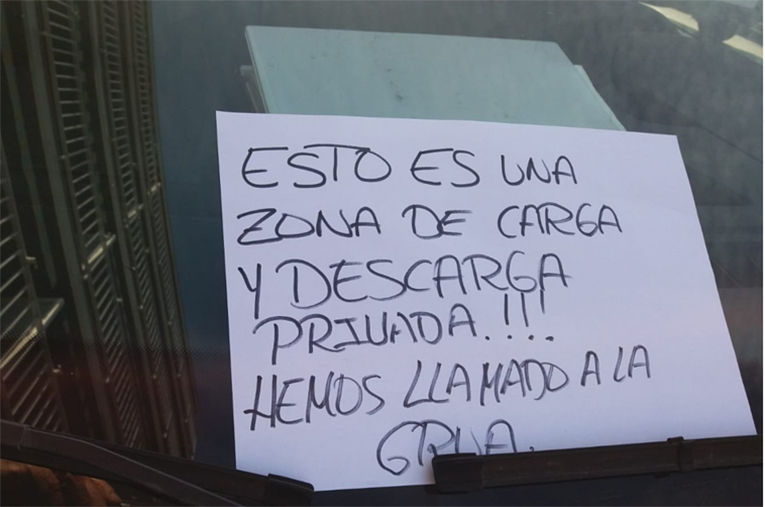 ESTO ES UNA
ZONA DE CARGA
Y DESCARGA
PRIVADA.!!!...
HEMOS LLAMADO A LA
GRUA.